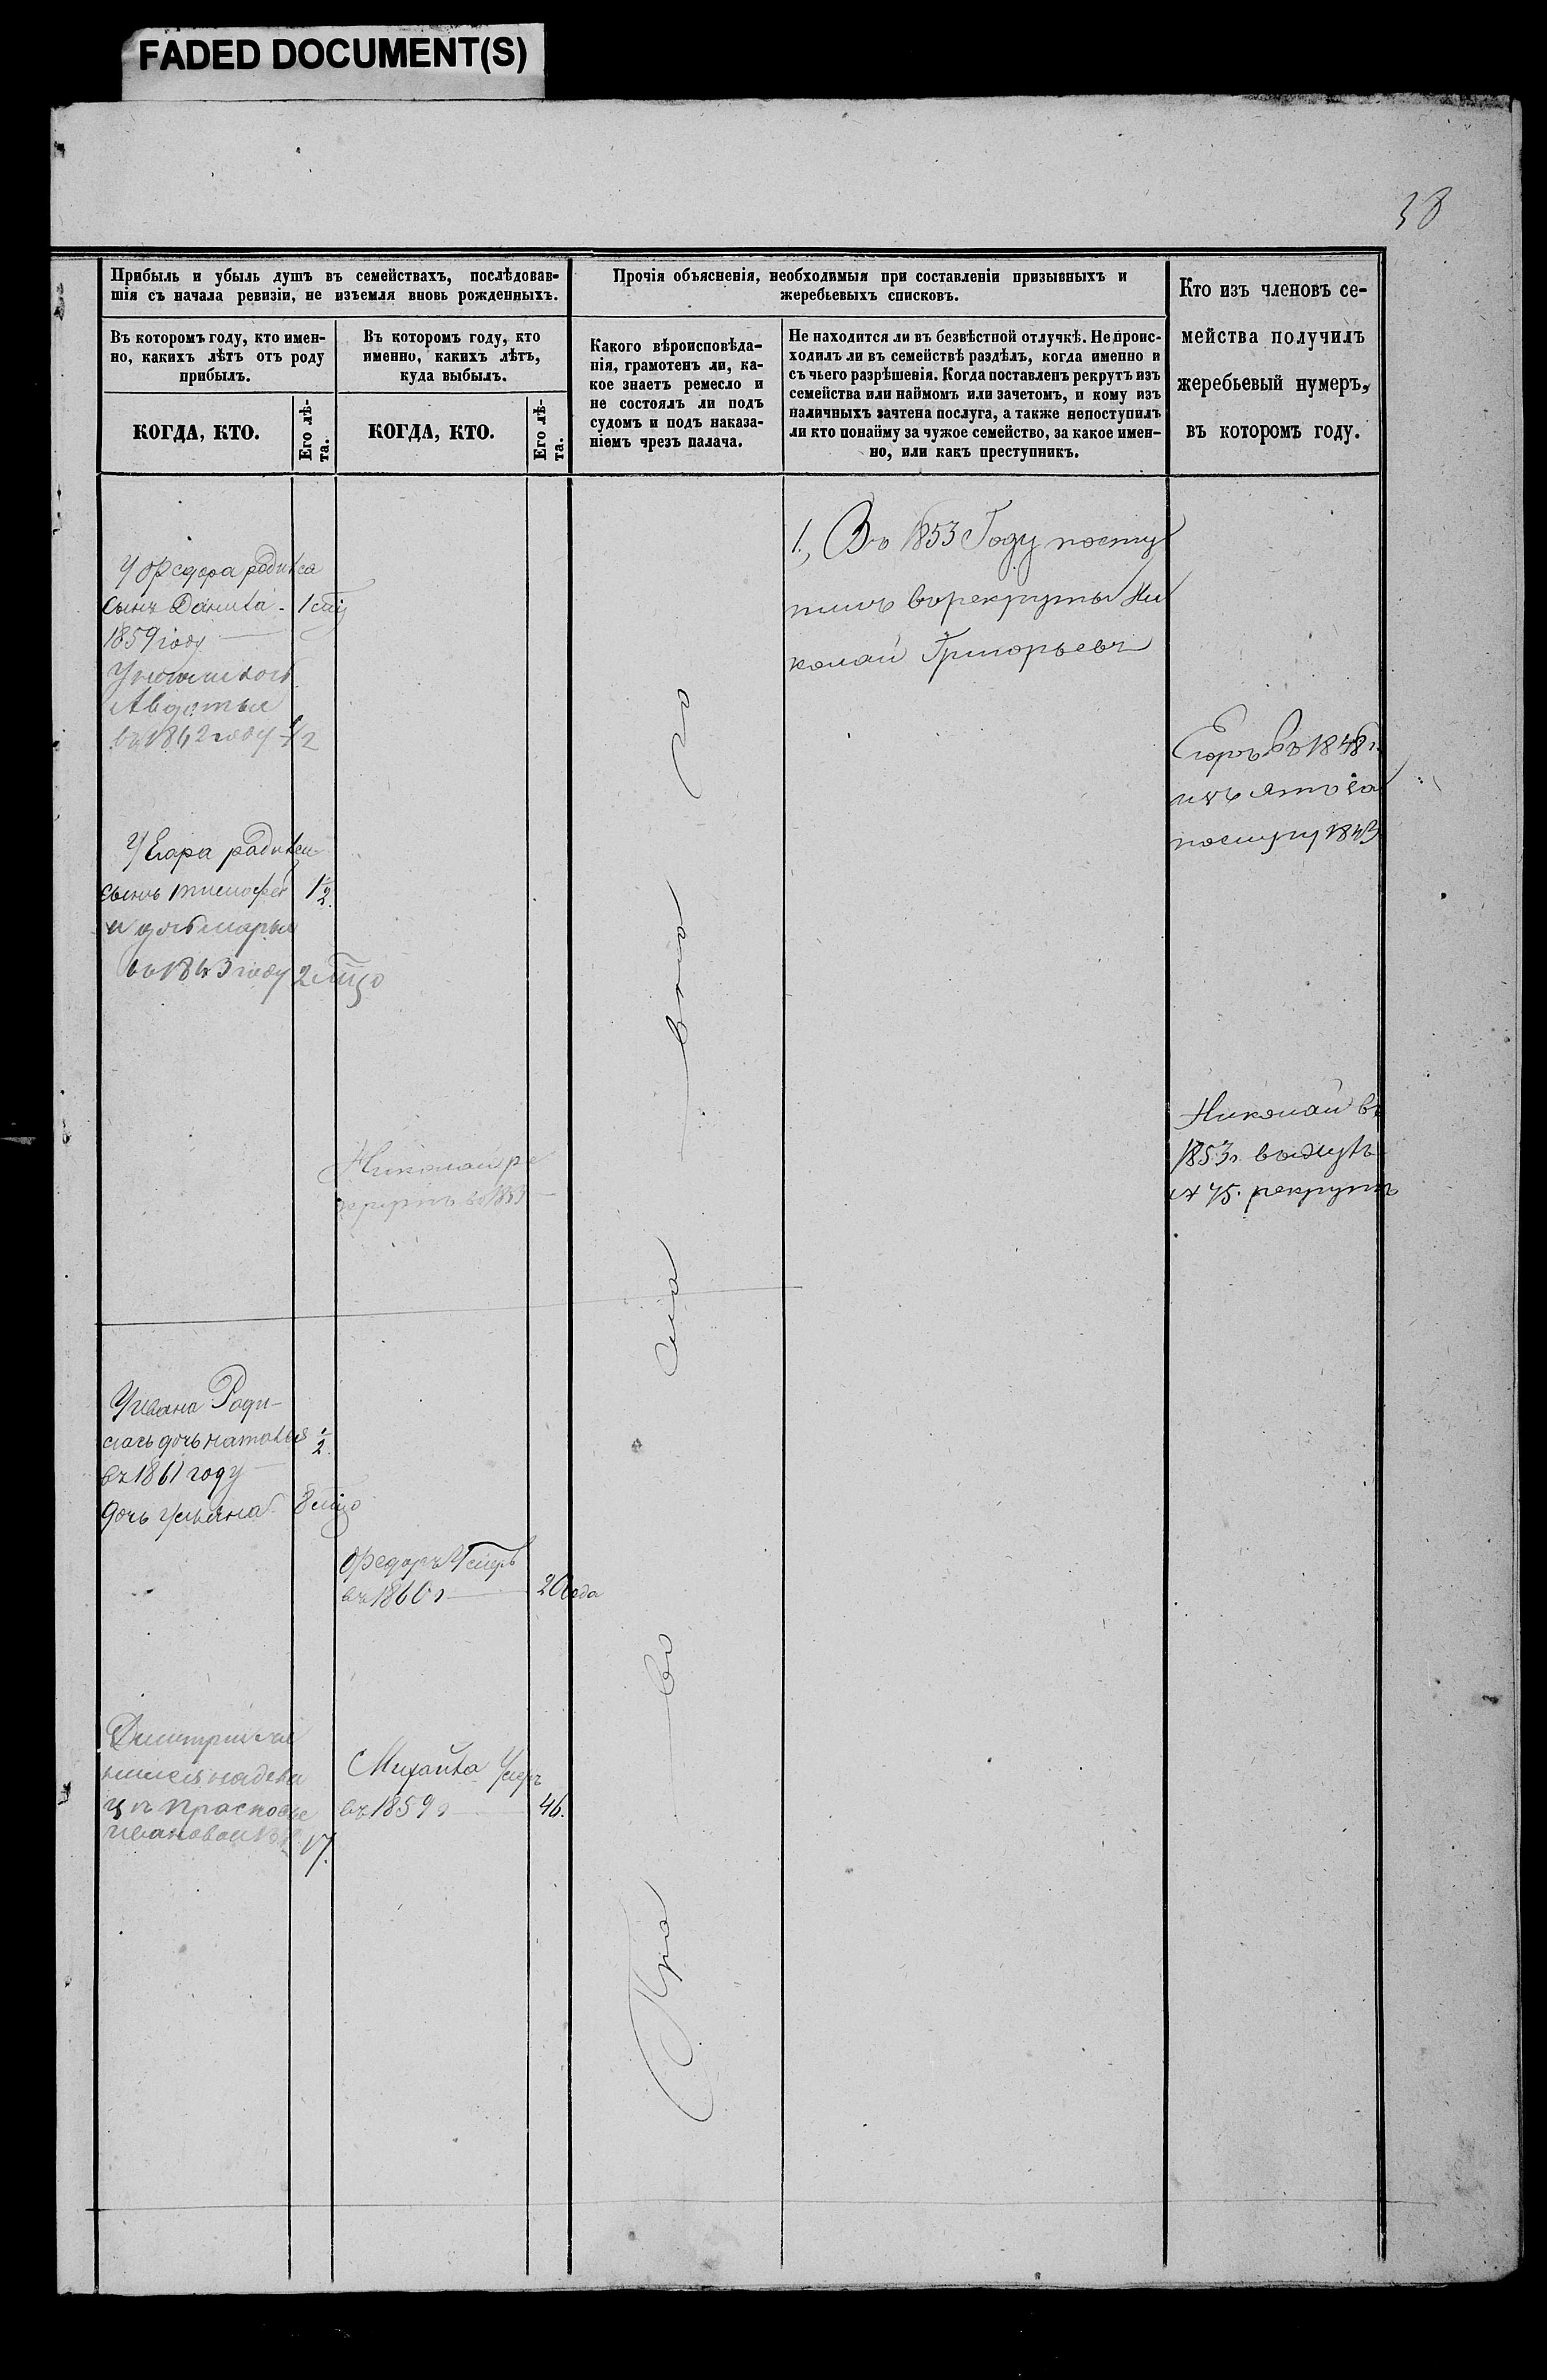 FADED DOCUMENT(S)
38
Прибыль и убыль душъ въ семействахъ, послѣдовав-
шія съ начала ревизіи, не изъемля вновь рожденныхъ.
Въ которомъ году, кто имен-
но, какихъ лѣтъ отъ роду
прибылъ.
КОГДА, КТО.
Его лѣ-
та.
Въ которомъ году, кто
именно, какихъ лѣтъ,
куда выбылъ.
КОГДА, КТО.
Его лѣ-
та.
Прочія объясненія, необходимыя при составленіи призывныхъ и
жеребьевыхъ списковъ.
Какого вѣроисповѣда-
нія, грамотенъ ли, ка-
кое знаетъ ремесло и
не состоялъ ли подъ
судомъ и подъ наказа-
ніемъ чрезъ палача.
Не находится ли въ безвѣстной отлучкѣ. Не проис-
ходилъ ли въ семействѣ раздѣлъ, когда именно и
съ чьего разрѣшенія. Когда поставленъ рекрутъ изъ
семейства или наймомъ или зачетомъ, и кому изъ
наличныхъ зачтена послуга, а также непоступилъ
ли кто понайму за чужое семейство, за какое имен-
но, или какъ преступникъ.
Кто изъ членовъ се-
мейства получилъ
жеребьевый нумеръ,
въ которомъ году.
У Федора родился
сынъ Данила 1
1859 году
Авдотья
въ 1842 году 1/2
У Егора родился
сынъ тимофей 1/2
и дочь марья
въ 1843 году 2
Николай ре
крутъ въ 1853
У Ивана Роди-
лась дочь наталья 1/2
въ 1861 году
дочь ульяна 8
Федоръ Умеръ
въ 1860 г 2 Года
Дмитрий
Ивановой 17.
Михайла Умеръ
въ 1859 г 46.
Пра во сла вна го
1, Въ 1853 Году посту
пилъ ворекруты Ни
колай Григорьевъ
Егоръ въ 1848 г.
послугу 1843
Николай въ
1853 г.
№ 45. рекрутъ